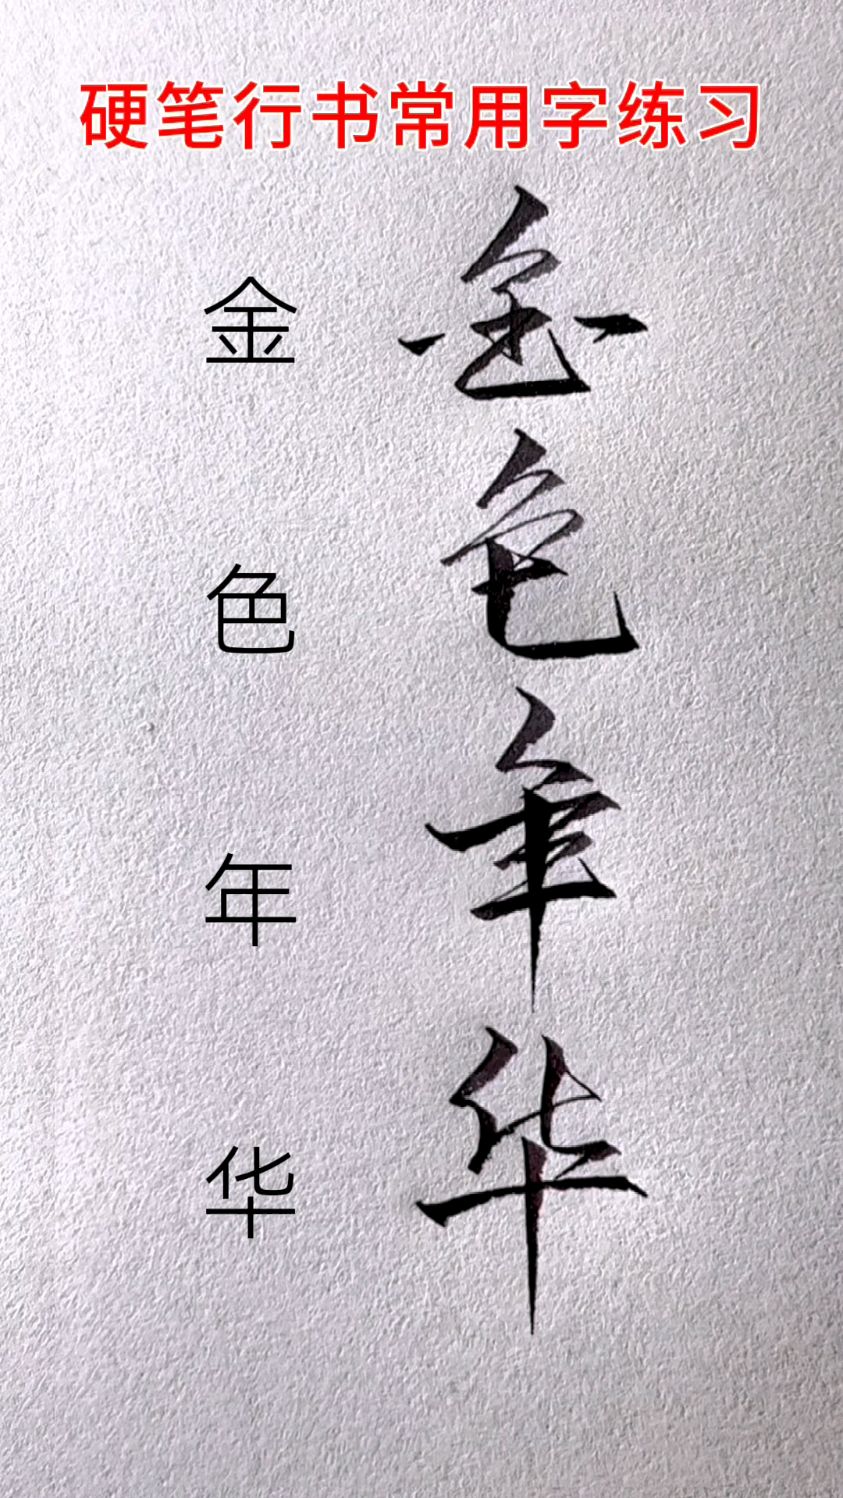 硬笔行书常用字练习
金 金
色 色
年 年
华 华